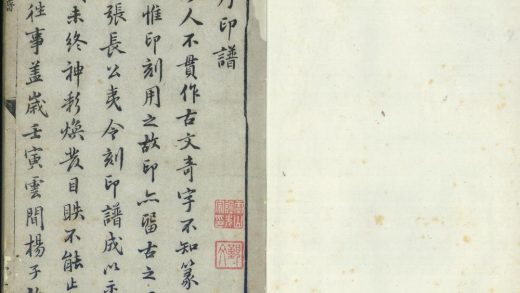 印譜
人不貫作古文奇字不知篆
惟印刻用之故印亦留古之
張長公夷令刻印譜成以示
未終神彩煥發目眣不能止
往事蓋歲壬寅雲間楊子
譜